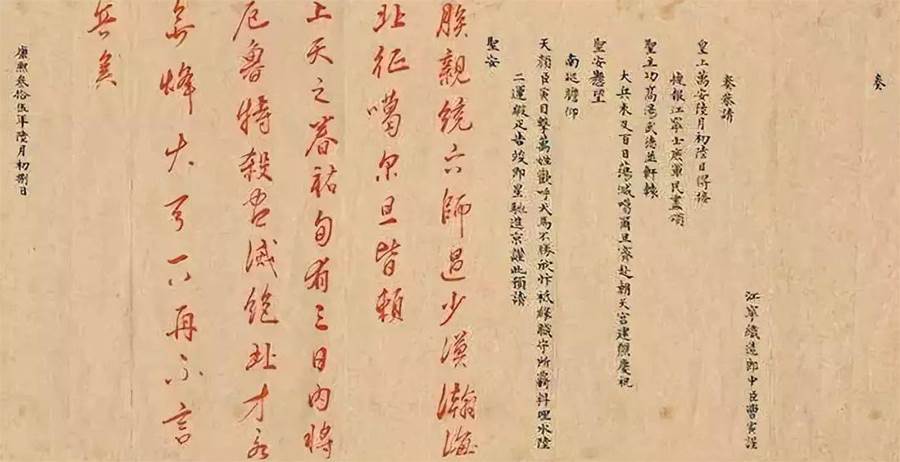 奏
江寧織造郎中臣曹寅謹
奏恭請
皇上萬安陸月初陸日得接
捷報江寧士庶軍民盡頌
聖主功高湯武德並軒轅
大兵未及百日蕩滅噶爾旦齊赴朝天宮建醮慶祝
聖安懸望
南廷瞻仰
天顏臣寅目擊萬姓歡呼犬馬不勝欣忭祗緣職守所羈料理水陸
二運緞疋告竣即星馳進京謹此預請
聖安
朕親統六師過少漠瀚海
北征噶尔旦皆賴
上天之眷祐旬有三日內將
厄魯特殺尽滅絕北方永
無烽火了以再不言
兵矣
康熙叁拾伍年陸月初捌日